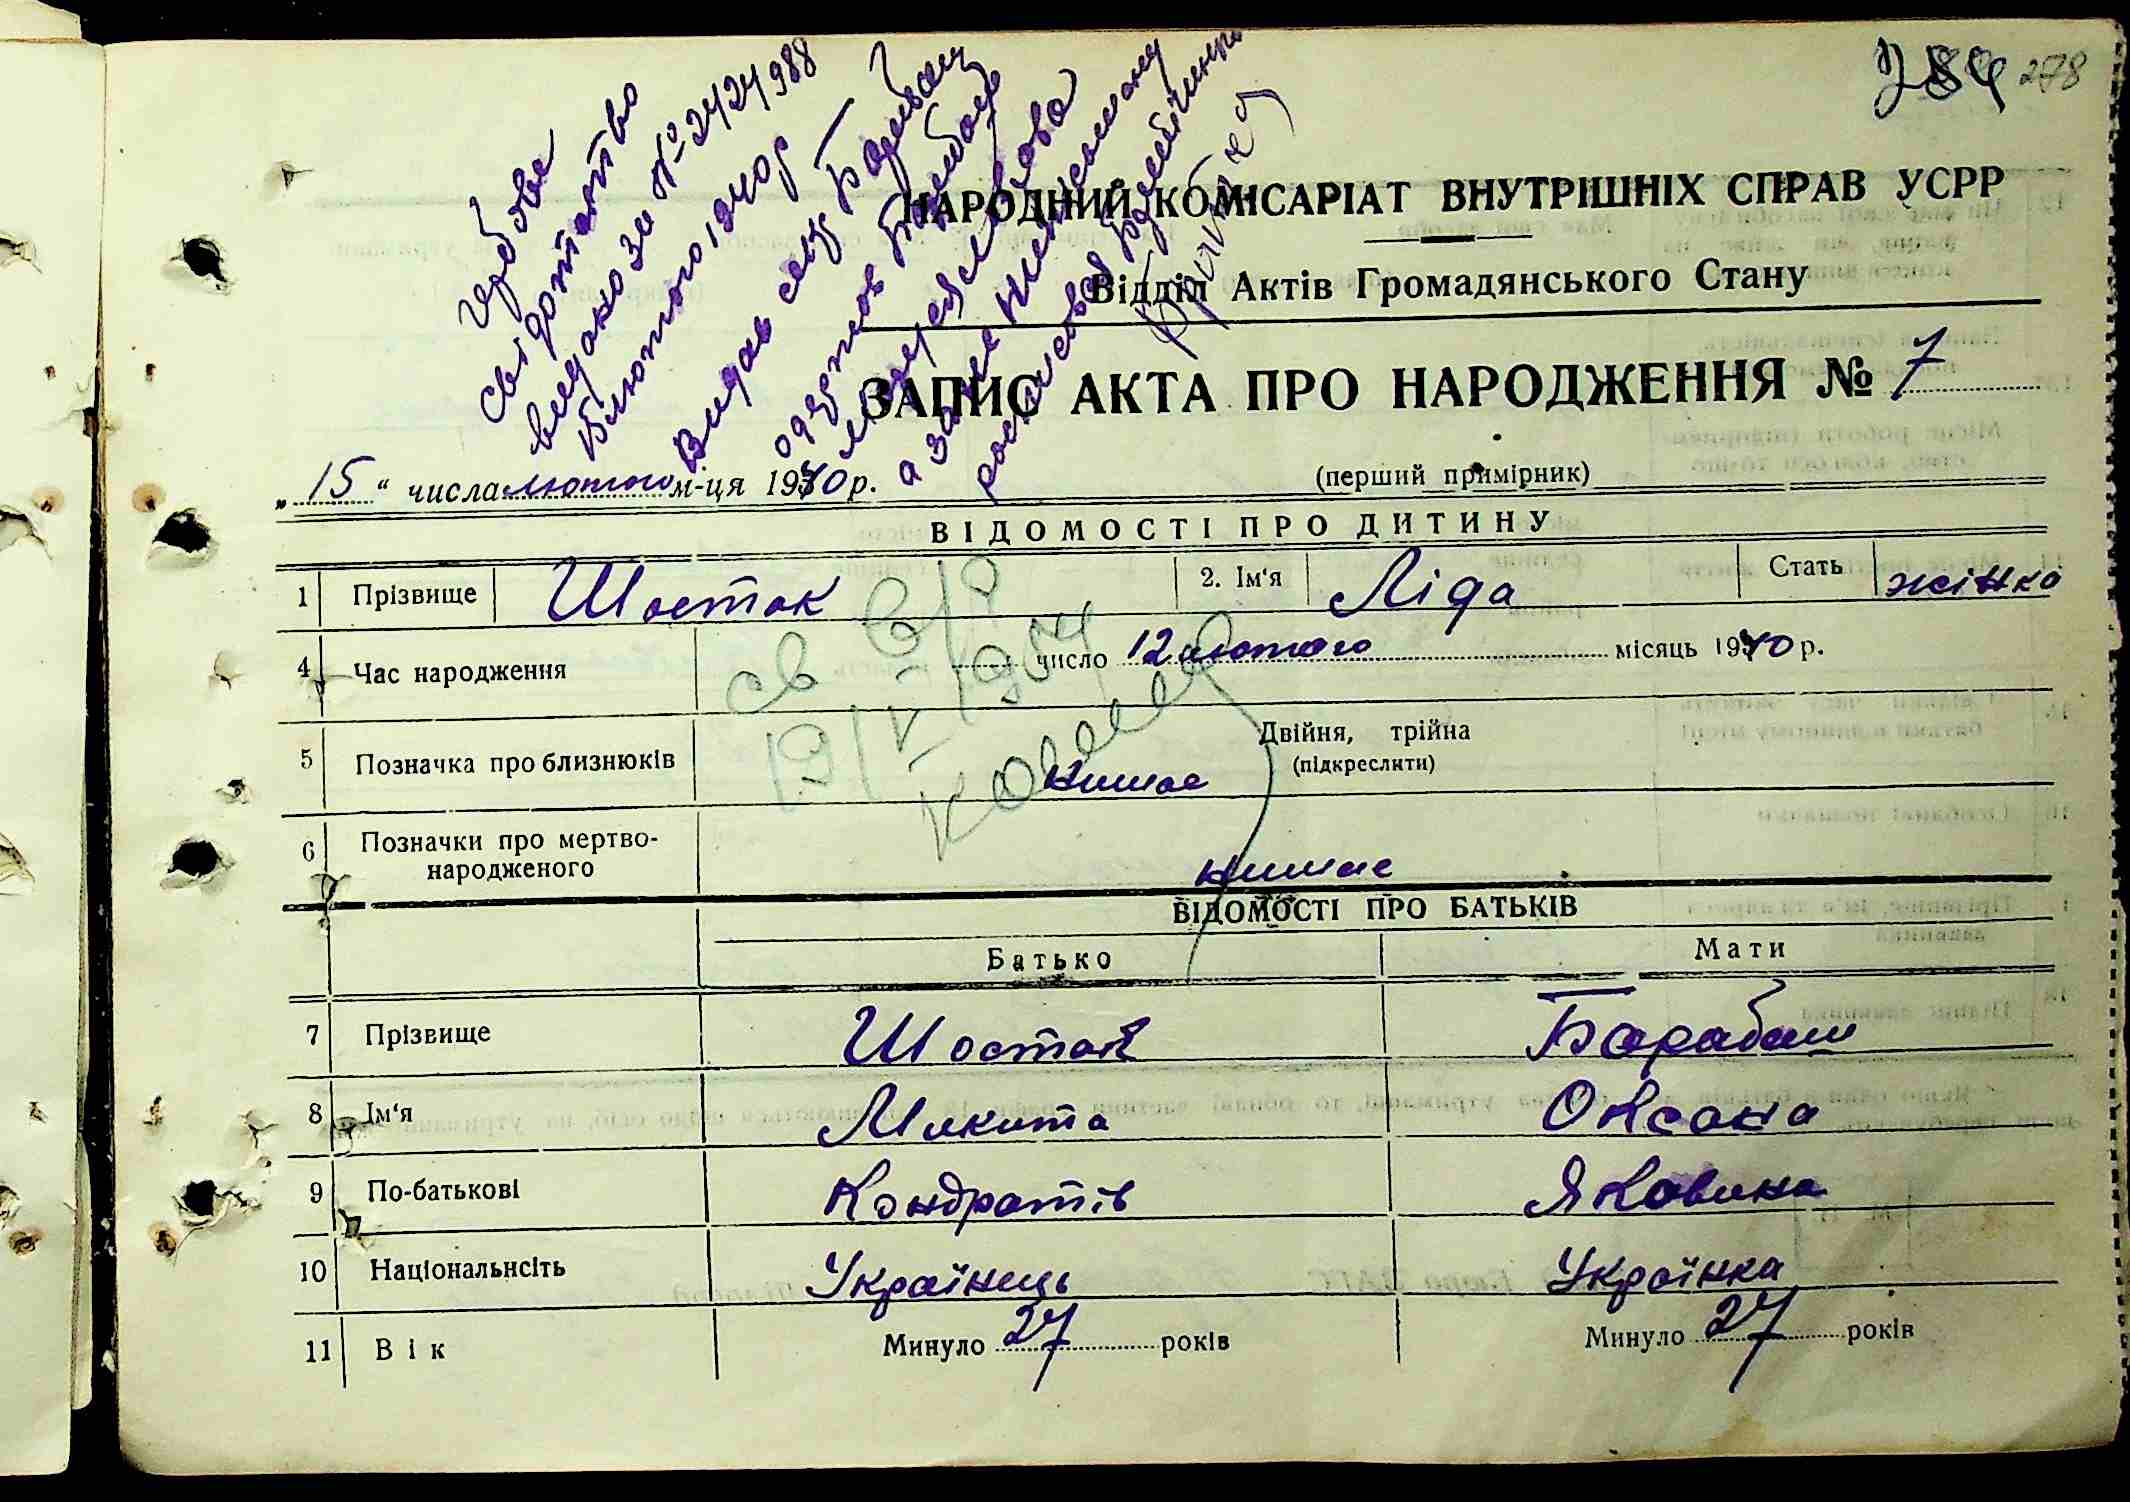 278
Шубове
свідотство
видано за № 2424988
15 лютого 1940 р
Видав
одержов Барабаш
а за не
росписовся
НАРОДНИЙ КОМІСАРІАТ ВНУТРІШНІХ СПРАВ УСРР
Відділ Актів Громадянського Стану
ЗАПИС АКТА ПРО НАРОДЖЕННЯ № 7
„15“ числа лютого м-ця 1940 р. (перший примірник)
ВІДОМОСТІ ПРО ДИТИНУ
1 Прізвище Шостак 2. Ім'я Ліда Стать жінка
4 Час народження число 12 лютого місяць 1940 р.
св
19/V 1954
5 Позначка про близнюків Двійня, трійна
(підкреслити)
нимає
6 Позначки про мертво-
народженого нимає
ВІДОМОСТІ ПРО БАТЬКІВ
Батько Мати
7 Прізвище Шостак Барабаш
8 Ім'я Микита Оксана
9 По-батькові Кондратів Яковина
10 Національнсіть Українець Українка
11 Вік Минуло 27 років Минуло 27 років